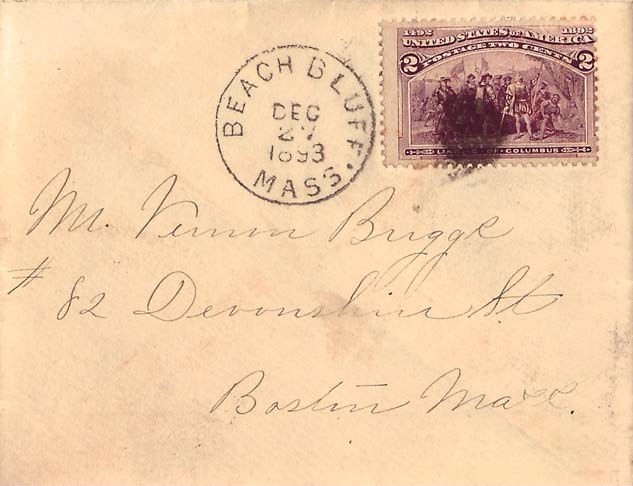 1492 1892
UNITED STATES OF AMERICA
POSTAGE TWO CENTS
2 2
COLUMBUS
BEACH BLUFF.
DEC
27
1893
MASS.
Mr. Vernon Briggs
# 82 Devonshire St
Boston Mass.